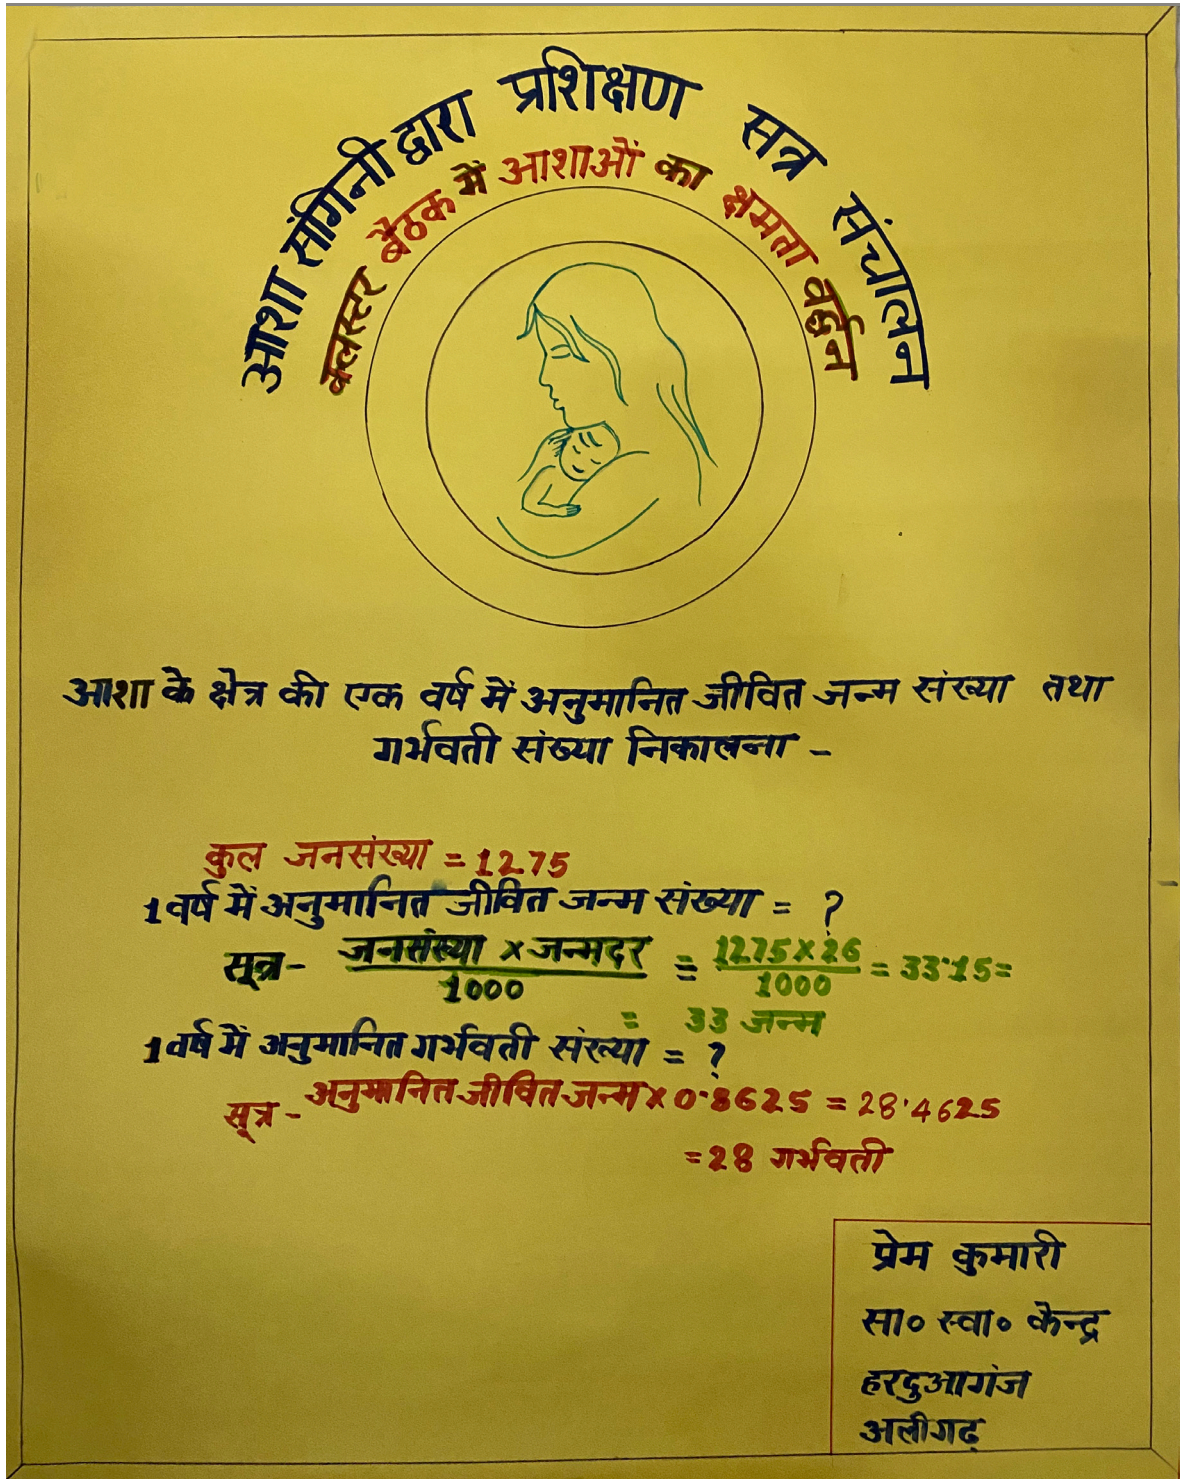 आशा संगिनी द्वारा प्रशिक्षण सत्र संचालन
क्लस्टर बैठक में आशाओं का क्षमता वर्द्धन
आशा के क्षेत्र की एक वर्ष में अनुमानित जीवित जन्म संख्या तथा
गर्भवती संख्या निकालना -
कुल जनसंख्या = 1275
1 वर्ष में अनुमानित जीवित जन्म संख्या = ?
सूत्र - जनसंख्या x जन्मदर / 1000 = 1275 x 26 / 1000 = 33.15 =
= 33 जन्म
1 वर्ष में अनुमानित गर्भवती संख्या = ?
सूत्र - अनुमानित जीवित जन्म x 0.8625 = 28.4625
= 28 गर्भवती
प्रेम कुमारी
सा० स्वा० केन्द्र
हरदुआगंज
अलीगढ़